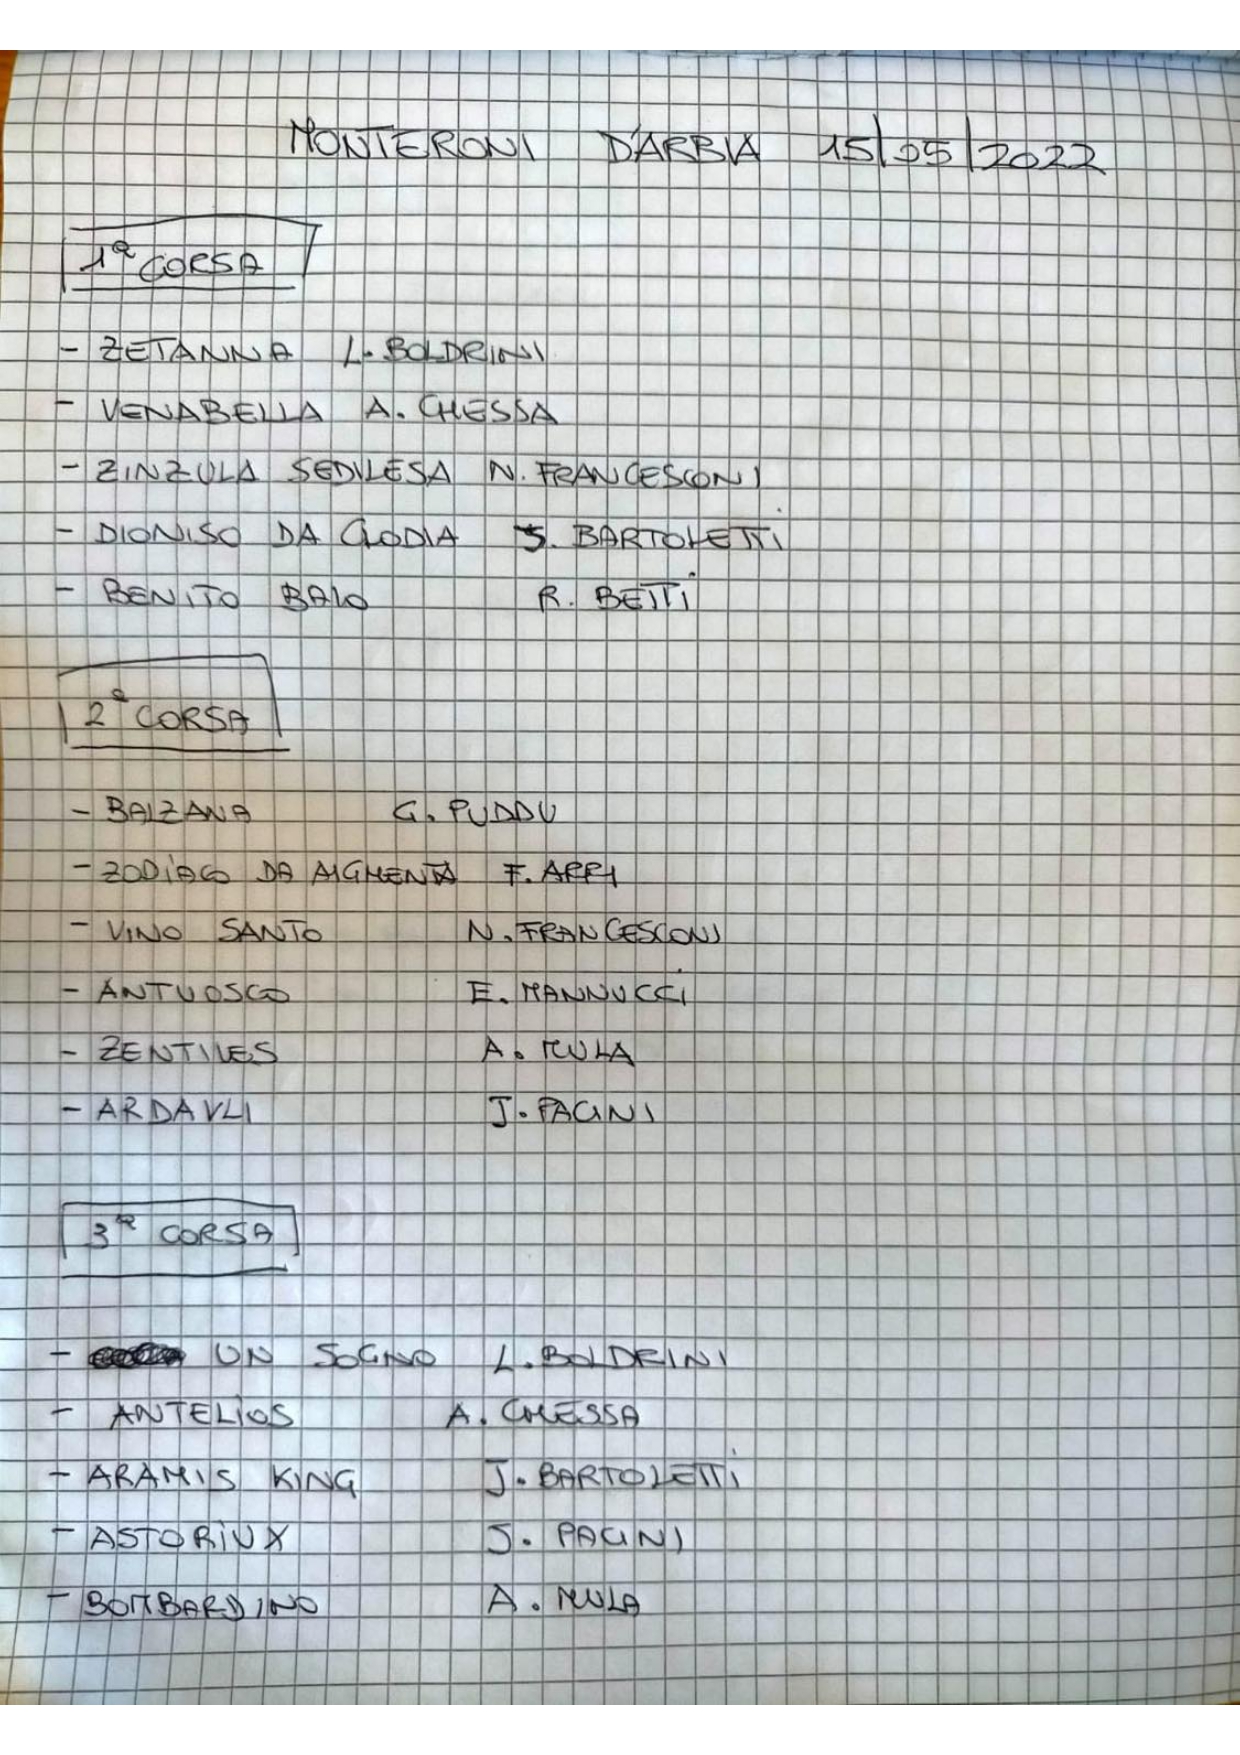 MONTERONI D'ARBIA 15/05/2022
1ª CORSA
- ZETANNA L. BOLDRINI
- VENABELLA A. CHESSA
- ZINZULA SEDILESA N. FRANCESCONI
- DIONISO DA CLODIA J. BARTOLETTI
- BENITO BAIO R. BETTI
2ª CORSA
- BALZANA G. PUDDU
- ZODIACO DA AIGHENTA F. ARRI
- VINO SANTO N. FRANCESCONI
- ANTUOSCO E. MANNUCCI
- ZENTILES A. MULA
- ARDAULI J. PACINI
3ª CORSA
- UN SOGNO L. BOLDRINI
- ANTELIOS A. CHESSA
- ARAMIS KING J. BARTOLETTI
- ASTORIUX J. PACINI
- BOMBARDINO A. MULA